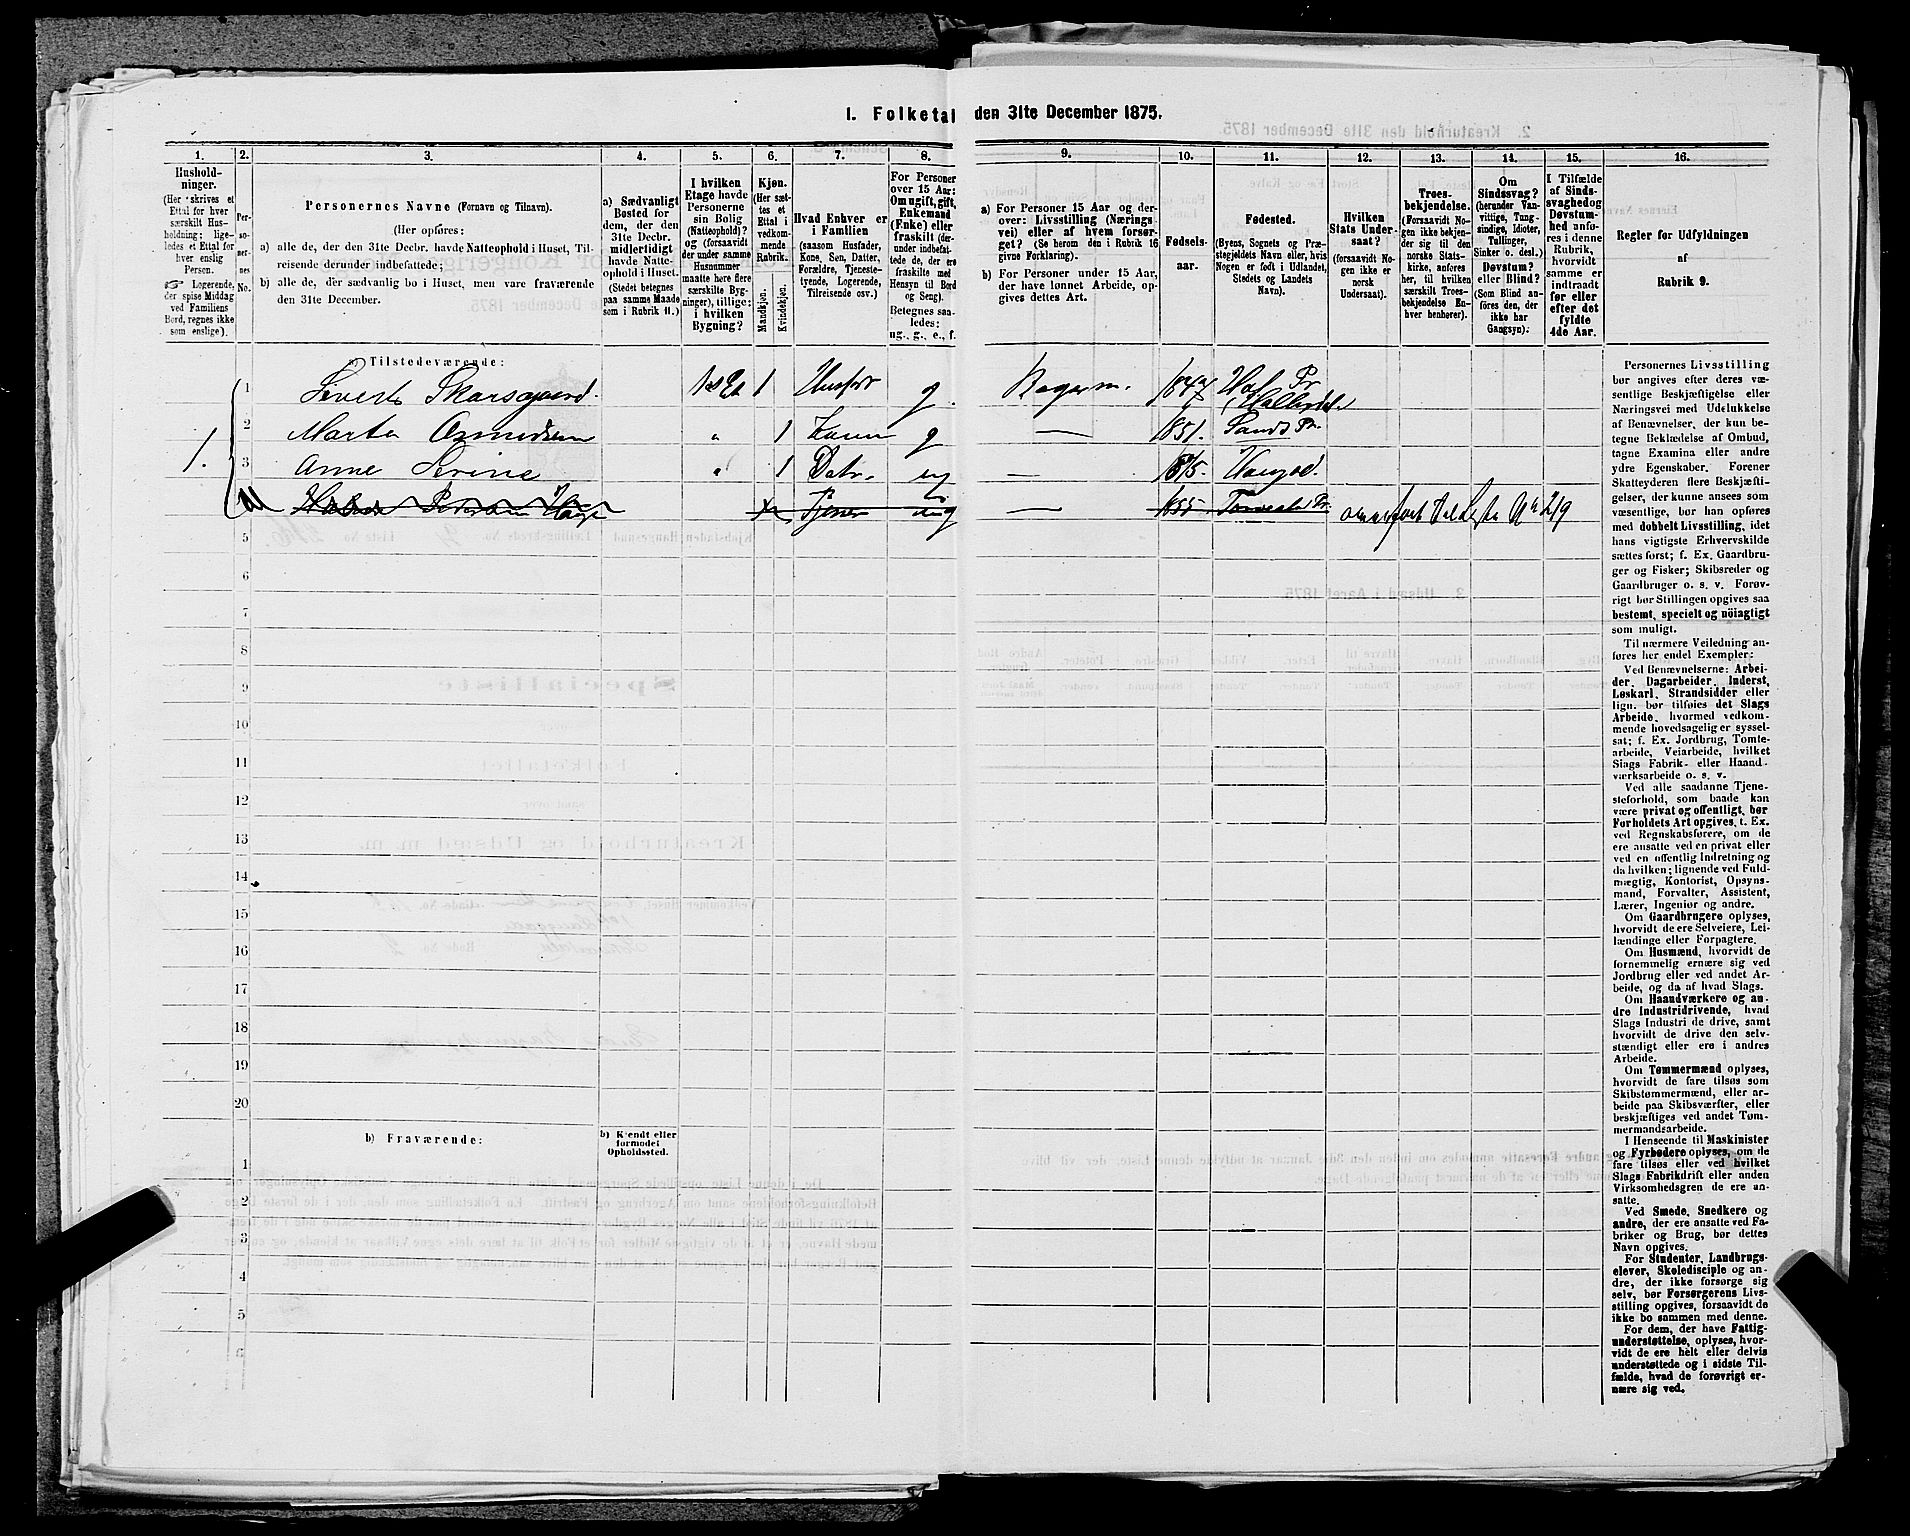 1. Folketal den 31te December 1875.
1.
Hushold-
ninger.
(Her skrives et
Ettal for hver
særskilt Hus-
holdning; lige-
ledes et Ettal for
hver enslig
Person.
Logerende,
der spise Middag
ved Familiens
Bord, regnes ikke
som enslige).
2.
Per-
so-
ner-
nes
No.
3.
Personernes Navne (Fornavn og Tilnavn).
(Her opføres:
a) alle de, der den 31te Decbr. havde Natteophold i Huset, Til-
reisende derunder indbefattede;
b) alle de, der sædvanlig bo i Huset, men vare fraværende
den 31te December.
4.
a) Sædvanligt
Bosted for
dem, der den
31te Decbr.
midlertidigt
havde Natte-
ophold i Huset.
(Stedet betegnes
paa samme Maade
som i Rubrik 11.)
5.
I hvilken
Etage havde
Personerne
sin Bolig
(Natteophold)?
og (forsaavidt
der under samme
Husnummer
maatte here flere
særskilte Byg-
ninger), tillige:
i hvilken
Bygning?
6.
Kjøn.
(Her sæt-
tes et
Ettal i
vedkom-
mende
Rubrik.
Mandkjøn.
Kvindekjøn.
7.
Hvad Enhver er
i Familien
(saasom Husfader,
Kone, Søn, Datter,
Forældre, Tjeneste-
tyende, Logerende,
Tilreisende osv.)
8.
For Personer
over 15 Aar:
Om ugift, gift,
Enkemand
(Enke) eller
fraskilt (der-
under indbefat-
tede, de, der ere
fraskilte med
Hensyn til Bord
og Seng).
Betegnes saa-
ledes:
ug., g., e., f.
9.
a) For Personer 15 Aar og der-
over: Livsstilling (Nærings-
vei) eller af hvem forsør-
get? (Se herom den i Rubrik 16
givne Forklaring).
b) For Personer under 15 Aar,
der have lønnet Arbeide, op-
gives dettes Art.
10.
Fødsels-
aar.
11.
Fødested.
(Byens, Sognets og Præ-
stegjeldets Navn eller, hvis
Nogen er født i Udlandet,
Stedets og Landets
Navn).
12.
Hvilken
Stats Under-
saat?
(forsaavidt No-
gen ikke er
norsk
Undersaat).
13.
Troes-
bekjendelse.
(Forsaavidt No-
gen ikke bekjen-
der sig til den
norske Stats-
kirke, anføres
her, til hvilken
særskilt Troes-
bekjendelse En-
hver henhører).
14.
Om
Sindssvag?
(herunder Van-
vittige, Tung-
sindige, Idioter,
Tullinger,
Sinker o. desl.)
Døvstum?
eller Blind?
(Som Blind an-
føres den, der
ikke har
Gangsyn).
15.
I Tilfælde
af Sinds-
svaghed og
Døvstum-
hed anfø-
res i denne
Rubrik,
hvorvidt
samme er
indtraadt
før eller
efter det
fyldte
4de Aar.
16.
Regler for Udfyldningen
af
Rubrik 9.
a) Tilstedeværende:
1. 1 Sivert Skarsgaard. 1ste Et 1 Husfdr g. Bagerm. 1847 Hof Pr
(Hallsted)
2 Marta Osmundsen " 1 Kone g — 1851. Sands Pr.
3 Anne Sivine " 1 Datr. ug — 1875. Haugsd.
Pedersen Hauge Tjener ug — 1855 Pr. omført Tælleliste No 219
5
6
7
8
9
10
11
12
13
14
15
16
17
18
19
20
b) Fraværende:
b) Kjendt eller
formodet
Opholdssted.
1
2
3
4
5
6
Personernes Livsstilling
bør angives efter deres væ-
sentlige Beskjæftigelse eller
Næringsvei med Udelukkelse
af Benævnelser, der kun be-
tegne Beklædelse af Ombud,
tagne Examina eller andre
ydre Egenskaber. Forener
Skatteyderen flere Beskjæfti-
gelser, der kunne ansees som
væsentlige, bør han opføres
med dobbelt Livsstilling, idet
hans vigtigste Erhvervskilde
sættes først; f. Ex. Gaardbru-
ger og Fisker; Skibsreder og
Gaardbruger o. s. v. Forøv-
rigt bør Stillingen opgives saa
bestemt, specielt og nöiagtigt
som muligt.
Til nærmere Veiledning an-
føres her endel Exempler:
Ved Benævnelserne: Arbei-
der, Dagarbeider, Inderst,
Løskarl, Strandsidder eller
lign. bør tilføies det Slags
Arbeide, hvormed vedkom-
mende hovedsagelig er syssel-
sat; f. Ex. Jordbrug, Tomte-
arbeide, Veiarbeide, hvilket
Slags Fabrik- eller Haand-
værksarbeide o. s. v.
Ved alle saadanne Tjene-
steforhold, som baade kan
være privat og offentligt, bør
Forholdets Art opgives, t. Ex.
ved Regnskabsførere, om de
ere ansatte ved en privat eller
ved en offentlig Indretning og
da hvilken; lignende ved Fuld-
mægtig, Kontorist, Opsyns-
mand, Forvalter, Assistent,
Lærer, Ingeniør og andre.
Om Gaardbrugere oplyses,
hvorvidt de ere Selveiere, Lei-
lændinge eller Forpagtere.
Om Husmænd, hvorvidt de
fornemmelig ernære sig ved
Jordbrug eller ved andet Ar-
beide, og da af hvad Slags.
Om Haandværkere og an-
dre Industridrivende, hvad
Slags Industri de drive, samt
hvorvidt de drive den selv-
stændigt eller ere i andres
Arbeide.
Om Tømmermænd oplyses,
hvorvidt de fare tilsøs som
Skibstømmermænd, eller ar-
beide paa Skibsværfter, eller
beskjæftiges ved andet Tøm-
mermandsarbeide.
I Henseende til Maskinister
og Fyrbødere oplyses, om de
fare tilsøs eller ved hvilket
Slags Fabrikdrift eller anden
Virksomhedsgren de ere an-
satte.
Ved Smede, Snedkere og
andre, der ere ansatte ved Fa-
briker og Brug, bør dettes
Navn opgives.
For Studenter, Landbrugs-
elever, Skoledisciple og an-
dre, der ikke forsørge sig
selv, bør Forsørgerens Livs-
stilling opgives, forsaavidt de
ikke bo sammen med denne.
For dem, der have Fattig-
understøttelse, oplyses, hvor-
vidt de ere helt eller delvis
understøttede og i sidste Til-
fælde, hvad de forøvrigt er-
nære sig ved.